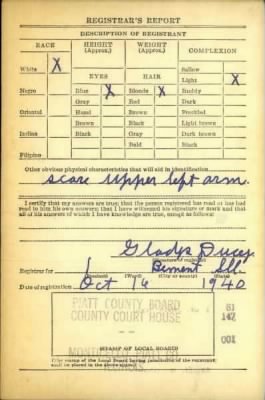 REGISTRAR'S REPORT
DESCRIPTION OF REGISTRANT
RACE HEIGHT (Approx.) WEIGHT (Approx.) COMPLEXION
White X Sallow
EYES HAIR Light X
Negro Blue X Blonde X Ruddy
Gray Red Dark
Oriental Hazel Brown Freckled
Brown Black Light brown
Indian Black Gray Dark brown
Bald Black
Filipino
Other obvious physical characteristics that will aid in identification
scare upper left arm.
I certify that my answers are true; that the person registered has read or has had read to him his own answers; that I have witnessed his signature or mark and that all of his answers of which I have knowledge are true, except as follows:
Gladys
Registrar for 1 Bement Ill.
(Precinct) (Ward) (City or county) (State)
Date of registration Oct 16 1940
PIATT COUNTY BOARD 1
COUNTY COURT HOUSE 61
147
001
(STAMP OF LOCAL BOARD)
MONTICELLO
ILLINOIS
(The stamp of the Local Board having jurisdiction of the registrant
shall be placed in the above space.)